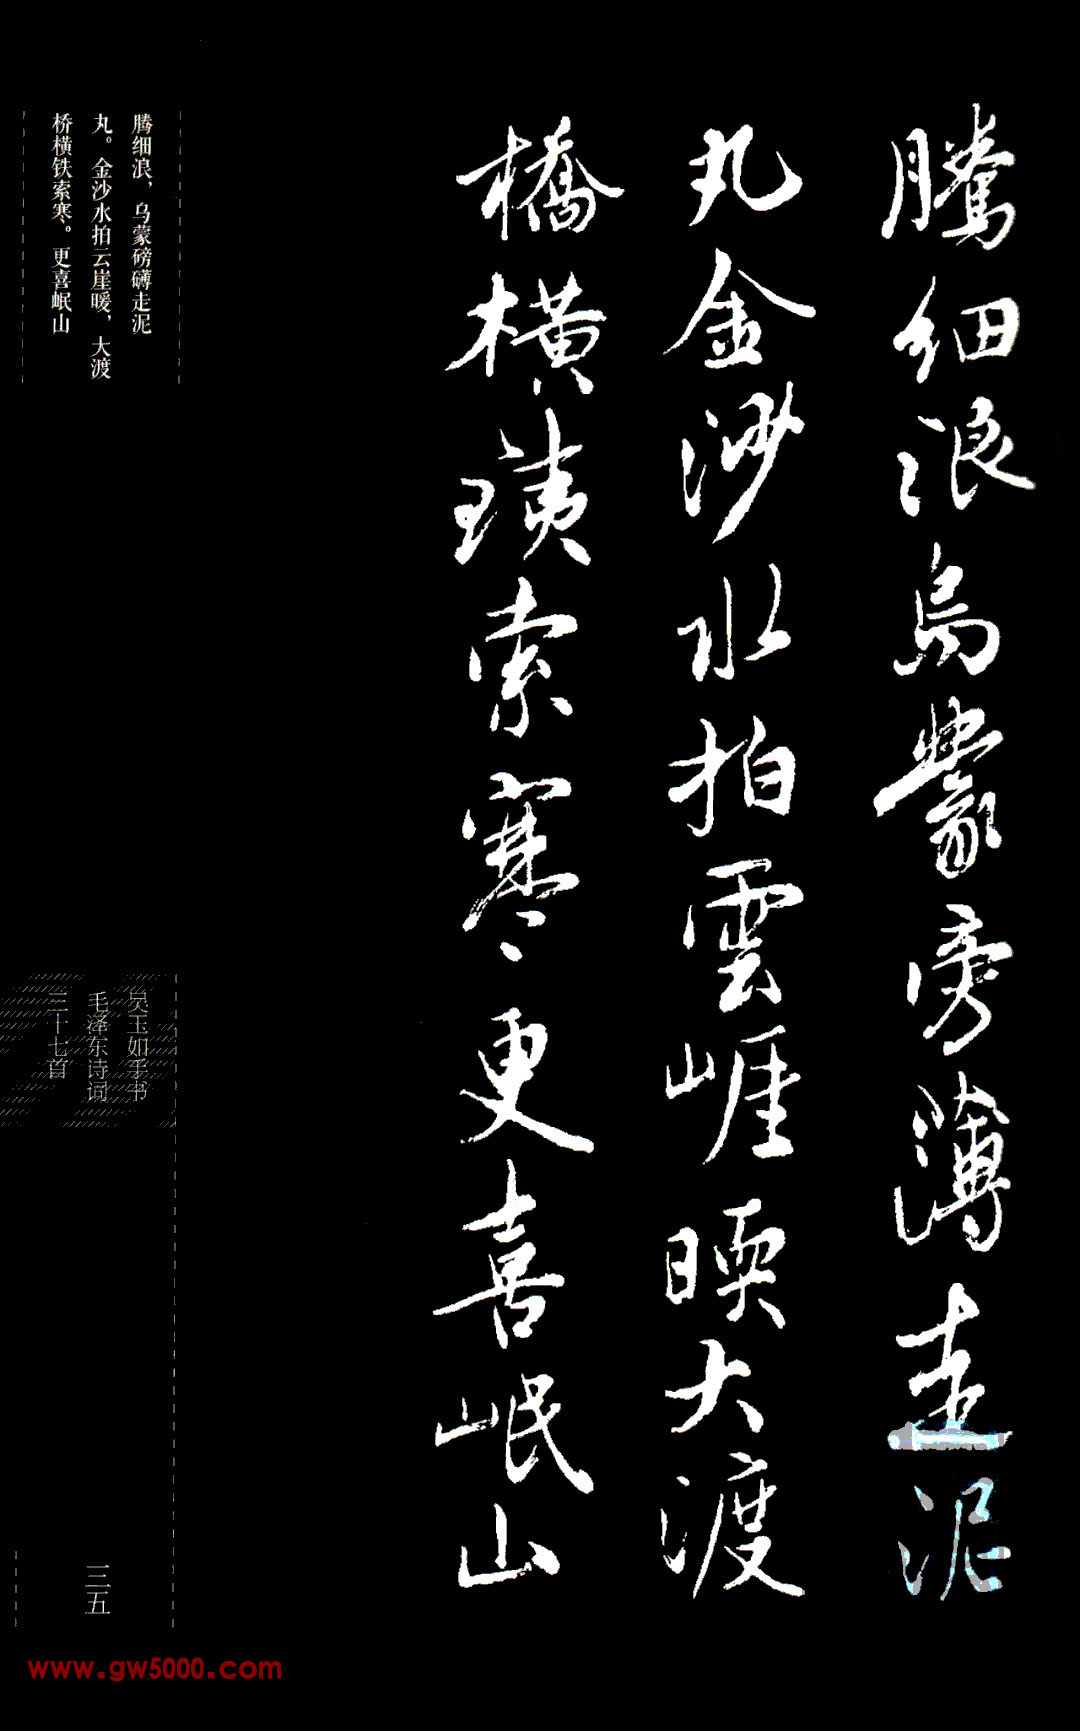 騰細浪烏蒙旁薄走泥
丸金沙水拍雲崖暝大渡
橋橫鐵索寒更喜岷山
腾细浪，乌蒙磅礴走泥
丸。金沙水拍云崖暖，大渡
桥横铁索寒。更喜岷山
吴玉如手书
毛泽东诗词
三十七首
三五
www.gw5000.com